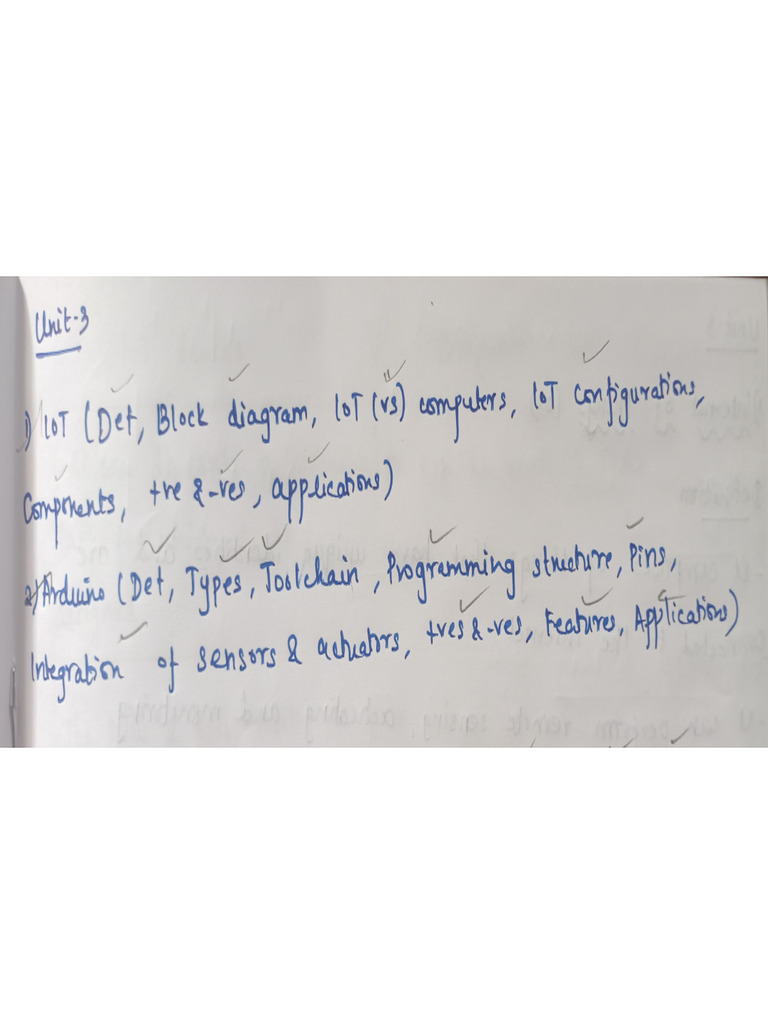 Unit-3
1) IoT (Def, Block diagram, IoT (vs) computers, IoT configurations,
Components, +ve & -ves, applications)
2) Arduino (Def, Types, Toolchain, Programming structure, Pins,
Integration of sensors & actuators, +ves & -ves, Features, Applications)